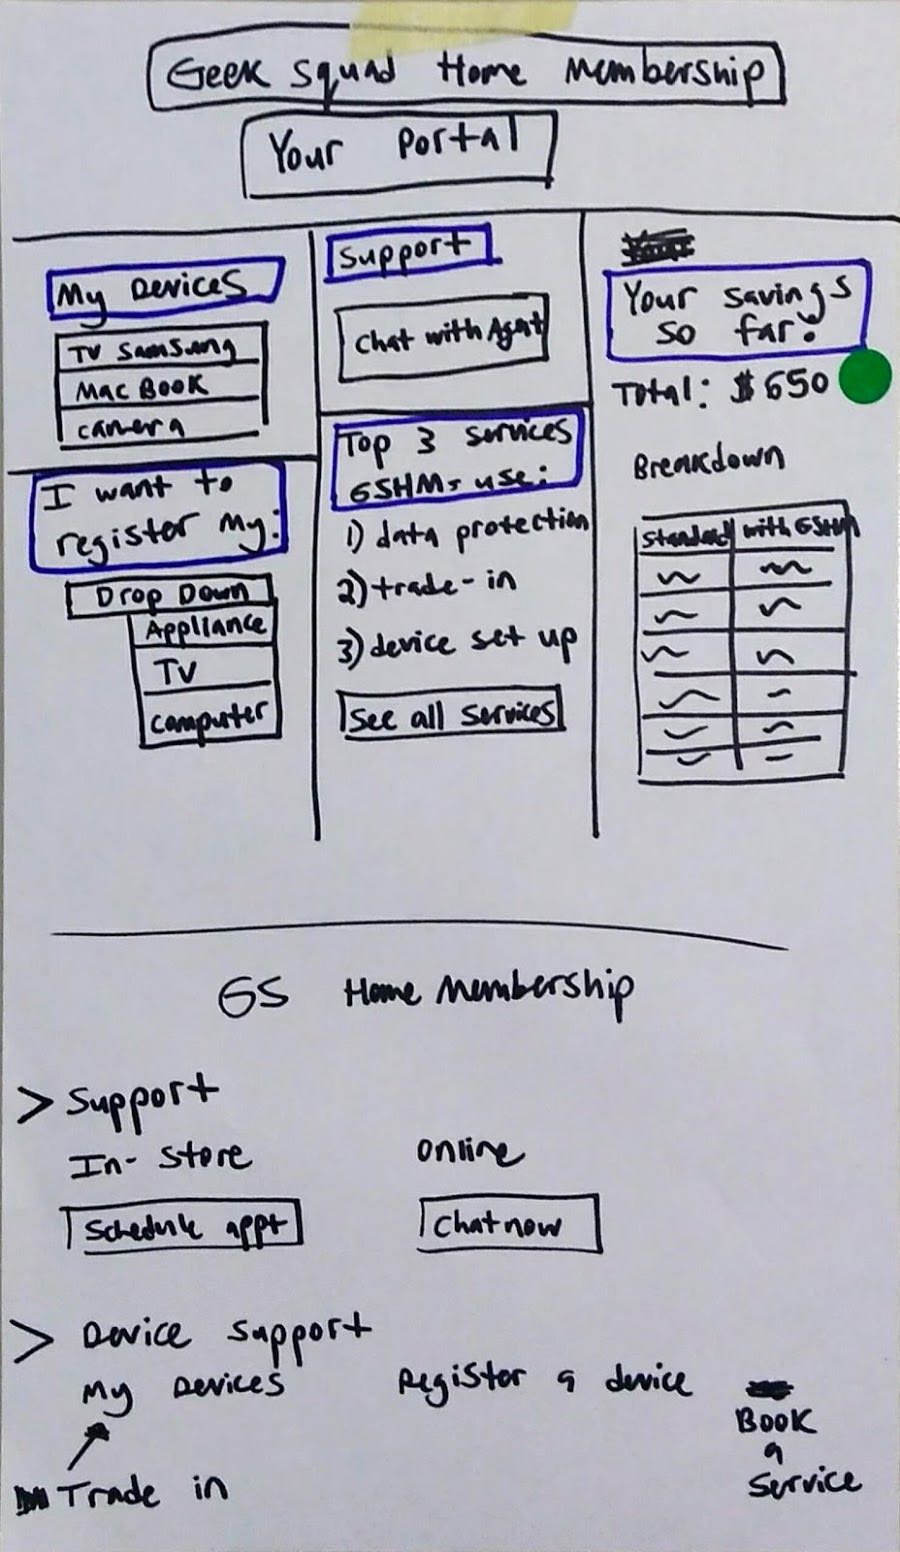 Geek Squad Home Membership
Your Portal
My Devices
TV Samsung
Mac Book
camera
I want to
register my:
Drop Down
Appliance
TV
computer
Support
Chat with Agent
Top 3 services
GSHM-use:
1) data protection
2) trade-in
3) device set up
See all services
Your savings
so far:
Total: $650
Breakdown
standard with GSHM
GS Home Membership
> Support
In-Store Online
Schedule appt Chat now
> Device Support
My Devices Registor a device
Book
a
Service
Trade in